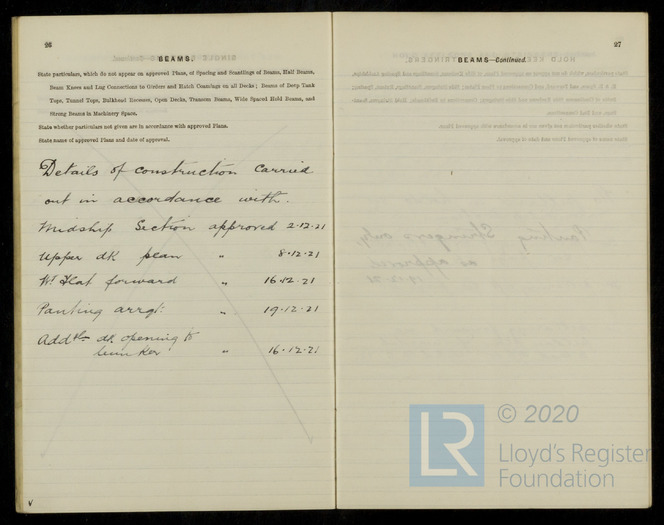 26
BEAMS.
State particulars, which do not appear on approved Plans, of Spacing and Scantlings of Beams, Half Beams,
Beam Knees and Lug Connections to Girders and Hatch Coamings on all Decks; Beams of Deep Tank
Tops, Tunnel Tops, Bulkhead Recesses, Open Decks, Transom Beams, Wide Spaced Hold Beams, and
Strong Beams in Machinery Space.
State whether particulars not given are in accordance with approved Plans.
State name of approved Plans and date of approval.
Details of construction carried
out in accordance with.
Midship Section approved 2.12.21
Upper dk plan " 8.12.21
Wr Flat forward " 16.12.21
Panting arrgt: " 19.12.21
Addtn dk opening to
bunker " 16.12.21
27
BEAMS—Continued.
LR
© 2020
Lloyd's Register
Foundation